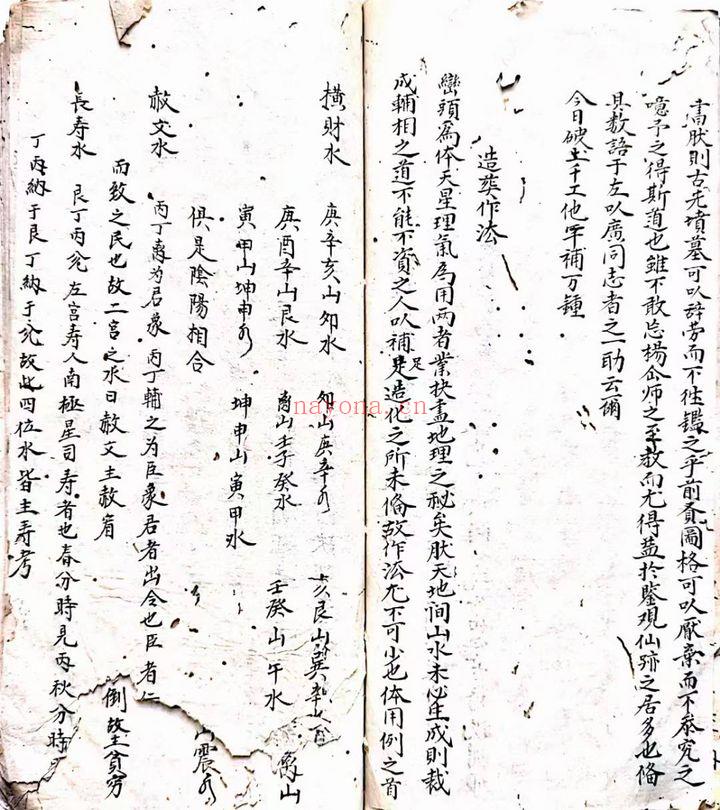 書肤則古先墳墓可以辞劳而不徃鑑之乎前賢圖格可以厭棄而不叅究之
噫予之得斯道也雖不敢忘楊公師之至教而尤得益於鑒观仙跡之居多也俻
具数語于左以廣同志者之一助云爾
今日破土千工他年補万鍾
造塟作法
巒頭為体天星理氣為用两者業抉盡地理之秘矣肰天地间山水未必生成則裁
成輔相之道不能不資之人以補足造化之所未俻故作法尤不可少也体用例之首
橫財水
庚辛亥山卯水 卯山庚辛水 亥艮山巽辛水
庚酉辛山艮水 离山壬子癸水 离山
寅甲山坤申水 坤申山寅甲水 壬癸山午水
俱是陰陽相合 震水
赦文水 丙丁离为君象丙丁輔之为臣象君者出令也臣者仁
而致之民也故二宫之水曰赦文主赦宥 倒故主貧穷
長寿水 艮丁丙兊左宫寿人南極星司寿者也春分時見丙秋分時
丁丙納于艮丁納于兊故此四位水皆主寿考
nayona.cn